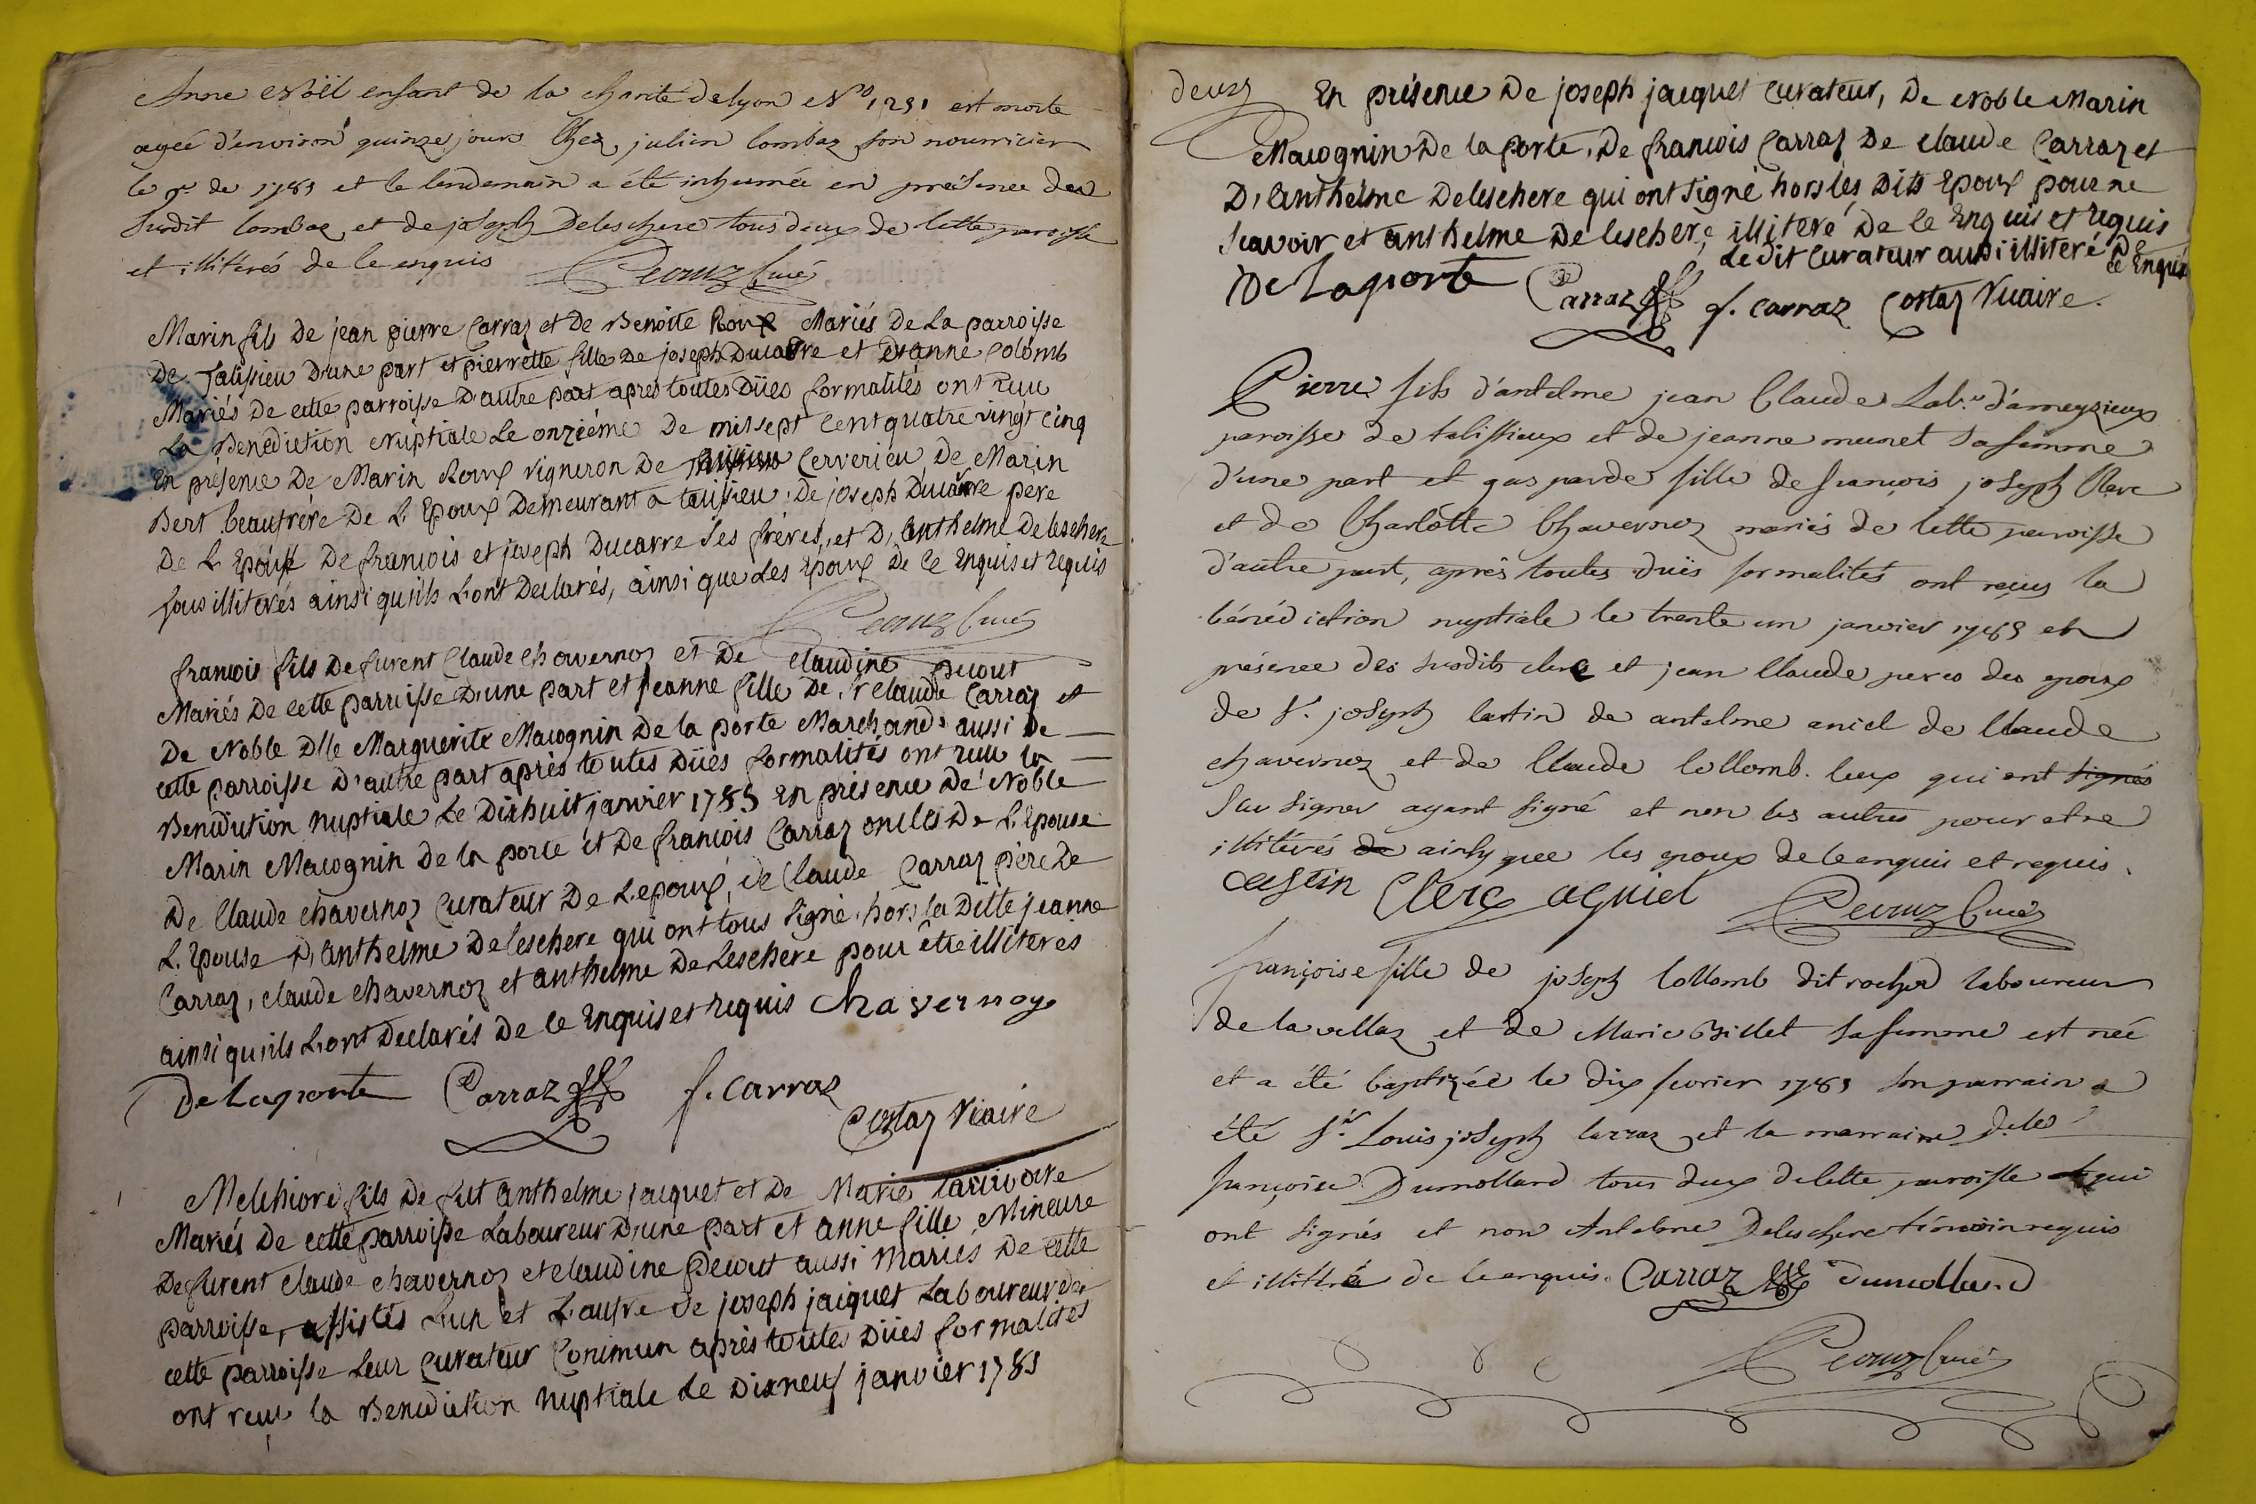 Anne Noël enfant de la charité de lyon N° 1291 est morte
agée d'environ quinze jours chez julien lombaz son nourricier
le 9r de 1785 et le lendemain a été inhumée en présence des
susdit lombaz et de joseph Deleschere tous deux de cette paroisse
et illiterés de ce enquis Pecouz Curé
Marin fils De jean pierre Carraz et De Benoîte Roux Mariés De La parroisse
De Talissieu D'une part et pierrette fille De joseph Ducarre et D'anne Colomb
Mariés De cette parroisse D'autre part apres toutes Düees formalités ont reçu
La Benediction Nuptiale Le onziéme De mil sept cent quatre vingt cinq
En présence De Marin Roux vigneron De Cerverieu De Marin
Bert beaufrére De L'Epoux Demeurant a talissieu, De joseph Ducarre pere
De L'Epouse De francois et joseph Ducarre ses fréres, et D'Anthelme Deleschere
tous illiterés ainsi qu'ils L'ont Declarés, ainsi que Les Epoux De Ce Enquis et requis
Pecouz Curé
francois fils De furent Claude Chavernoz et De Claudine pecout
Mariés De cette parroisse D'une part et jeanne fille De Sr Claude Carraz et
De Noble Dlle Marguerite Macognin De la porte Marchands aussi De
cette parroisse D'autre part après toutes Düës formalités ont reçu la
Benediction nuptiale Le Dixhuit janvier 1785 En présence De Noble
Marin Macognin De la porte et De francois Carraz oncles De L'Epouse
De Claude Chavernoz Curateur De L'epoux, de Claude Carraz père De
L'Epouse D'anthelme Deleschere qui ont tous signé, hors la Ditte jeanne
Carraz, Claude Chavernoz et anthelme De Leschere pour être illiteres
ainsi qu'ils L'ont Declarés De ce Enquis et requis Chavernoz
De Laporte Carraz f. carraz
Costaz Vicaire
Melchiore fils De fut anthelme jacquet et De Marie Larrivoire
Mariés De cette parroisse Laboureur D'une part et anne fille Mineure
De furent Claude Chavernoz et Claudine Pecout aussi Mariés De cette
parroisse, assistés L'un et L'autre De joseph jacquet Laboureur De
cette parroisse Leur Curateur Commun après toutes Düës formalités
ont reçu la Benediction Nuptiale Le Dixneuf janvier 1785
deux
En présence De joseph jacquet Curateur, De Noble Marin
Macognin De la Porte, De francois Carraz De Claude Carraz et
D'Anthelme Deleschere qui ont signé hors les Dits Epoux pour ne
scavoir et anthelme De leschere, illiteré De Ce Enquis et requis
Le Dit Curateur aussi illiteré De
Ce Enquis
De Laporte Carraz f. carraz Costaz Vicaire.
Pierre fils d'antelme jean Claude Labr d'ameyzieux
paroisse de talissieux et de jeanne munet sa femme
d'une part et gasparde fille de françois joseph Clerc
et de Charlotte Chavernoz mariés de cette paroisse
d'autre part, aprés toutes duës formalités ont reçus la
bénédiction nuptiale le trente un janvier 1785 en
présence des susdits clerc et jean Claude peres des epoux
de Sr. joseph Castin de antelme aniel de Claude
chavernoz et de Claude Collomb. Ceux qui ont signés
sçu signer ayant signé et non les autres pour etre
illitérés de ainsy que les epoux de ce enquis et requis.
Castin Clerc aguiel Pecouz Curé
françoise fille de joseph Collomb dit rocher laboureur
de lavellaz et de Marie Billet sa femme est née
et a été baptizée le dix fevrier 1785 son parrain a
été Sr. Louis joseph Carraz et la marraine Delle
françoise Dumollard tous deux de cette paroisse qui
ont signés et non Antelme Deleschere témoin requis
et illittré de ce enquis. Carraz Dumollard
Pecouz Curé